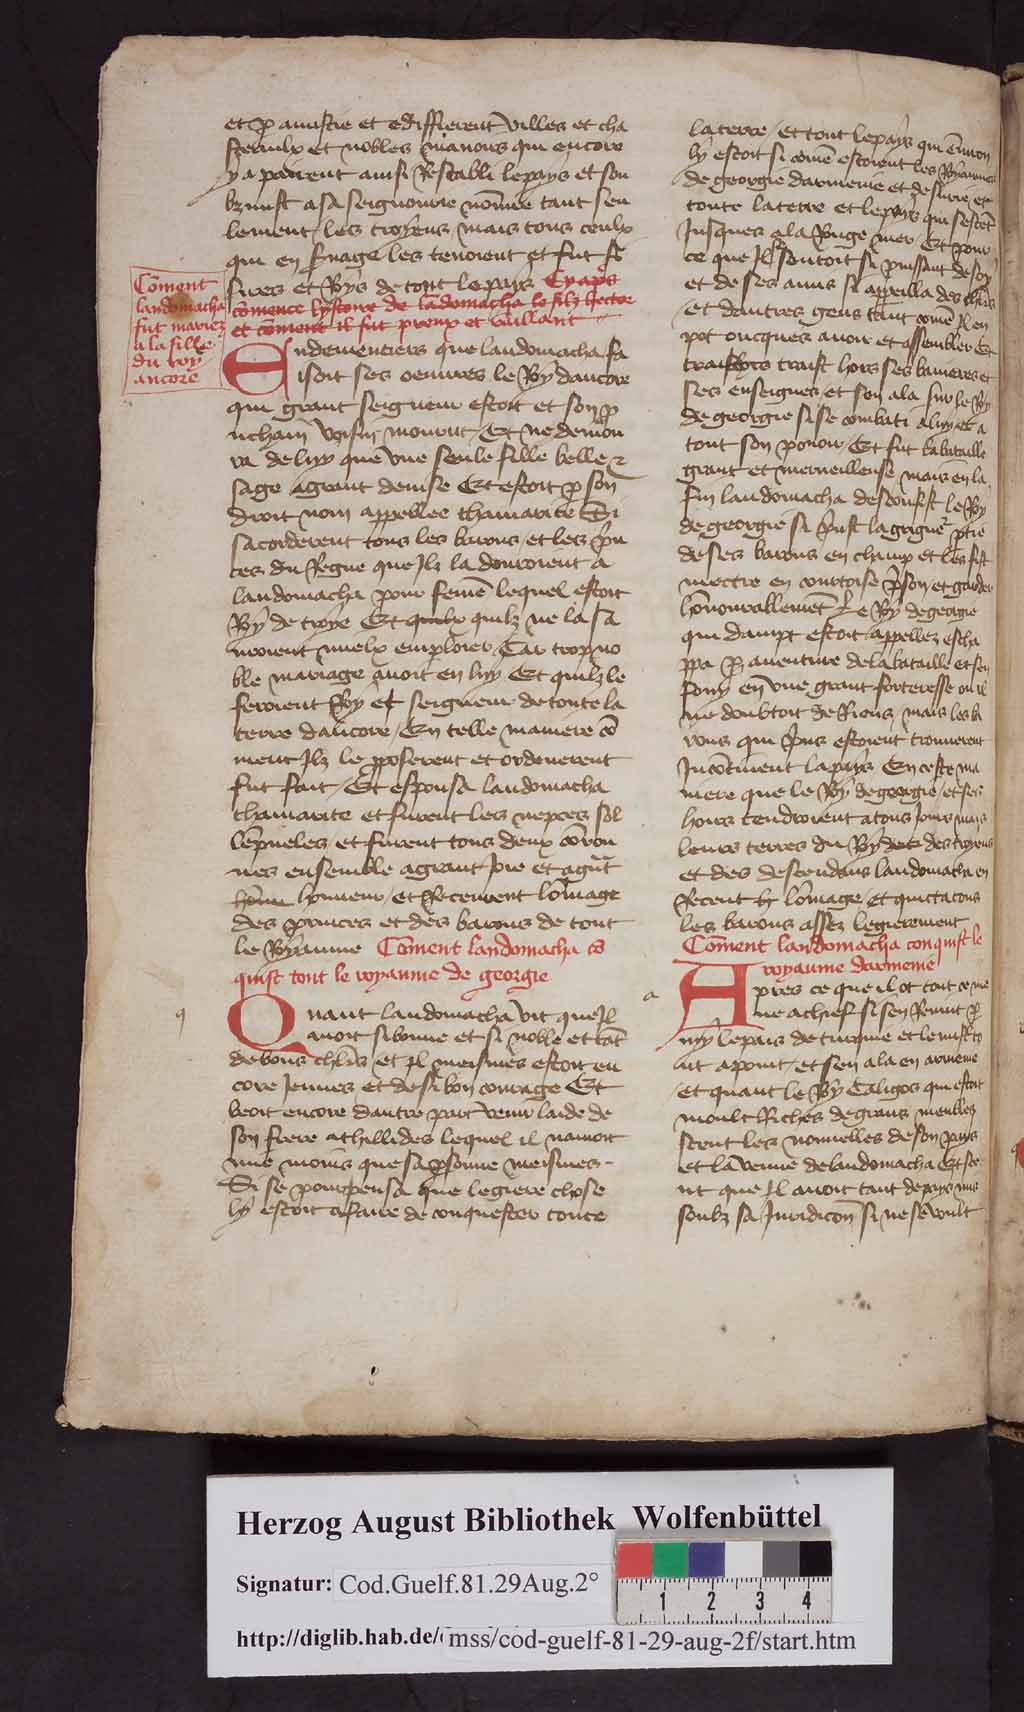 et p amistie et ediffierent villes et cha
steaulx et nobles manoirs qui encore
y a pairent ainsi Restabli le pays et son
bzmist a sa seignourie nōmee tant seu
lement les troyens mais tous ceulx
qui en suage les tenoient et fut si
sires et Roys de tout le pays Cy aps
cōmence lystoire de landomacha le filz hector
et cōment il fut preux et vaillant
Cōment
landomacha
fut mariez
a la fille
du roy
ancore
Endementiers que landomacha fa
isoit ses oeuures le Roy dancore
qui grant seigneur estoit et son p
uchain voisin mourut Et ne demou
ra de luy que vne seule fille belle et
sage a grant deuise Et estoit p son
droit nom appellee thamarite Si
sacorderent tous les barons et les prin
ces du Regne que Ilz la donroient a
landomacha pour femē lequel estoit
Roy de troye Et quilz ne la sa
uroient mielx emploier Car trop no
ble mariage auoit en luy Et quilz le
feroient Roy et seigneur de toute la
terre dancore En telle maniere cō
ment Ilz le pposerent et ordonerent
fut fait Et espousa landomacha
thamarite et furent les nepces sol
lēpneles et furent tous deux cōron
nes ensemble a grant Joie et a grāt
honneur et Receurent lōmage
des princes et des barons de tout
le Royaume Cōment landomacha cō
quist tout le royaume de georgie
Quant landomacha vit que Il
auoit si bonne et si noble et tāt
de bons chlrs et Il meismes estoit en
core Jeunes et de si bon courage Et
veoit encore dautre part venir laide de
son frere athillides lequel il namoit
mie moins que sa psonne meismes
Si se pourpensa que legiere chose
ly estoit a faire de conquester toute
la terre et tout le pays qui enuiron
ly estoit si cōme estoient les Royaumes
de georgie darmenie et de surie et
toute la terre et le pays qui sestēt
Jusques a la Rouge mer Et pour
ce que Il se sentoit si puissant de soy
et de ses amis si appeilla des chlrs
et dautres gens tant cōme Il en
pot oncques auoir et assembler Et
traist hors ses banieres et
ses enseignes et sen ala sur le Roy
de georgie si se combati a luy et a
tout son pouoir Et fut la bataille
grant et merueilleuse mais en la
fin landomacha desconfist le Roy
de georgie si prist la grigneᵘʳ ptie
de ses barons en champ et les fist
mectre en courtoise pson et garder
hōnourablement Le Roy de georgie
qui dampt estoit appellez escha
ppa p auenture de la bataille et sen
fouy en vne grant forteresse ou il
ne doubtoit de Riens mais les ba
rons qui prins estoient trouuerent
Incōtinent la pays En ceste ma
niere que le Roy de georgie et ses
hoirs tendroient a tous Jours mais
leurs terres du Roy des troyens
et des descendans landomacha en
Receut lōmage et quicta tous
les barons assez legierement
Cōment landomacha conquist le
royaume darmenie
Apres ce que il ot tout ce me
ne a chief si sen Reuint p
my le pais de turquie et le mist to
ut a point et sen ala en armenie
et quant le Roy Caligos qui estoit
moult Riches de grans meubles
sceut les nouuelles de son pays
et la venue de landomacha Et sce
ut que Il auoit tant de pays mis
soubz sa Juridicōn si ne se voult
Herzog August Bibliothek Wolfenbüttel
Signatur: Cod.Guelf.81.29Aug.2°
1 2 3 4
http://diglib.hab.de/mss/cod-guelf-81-29-aug-2f/start.htm